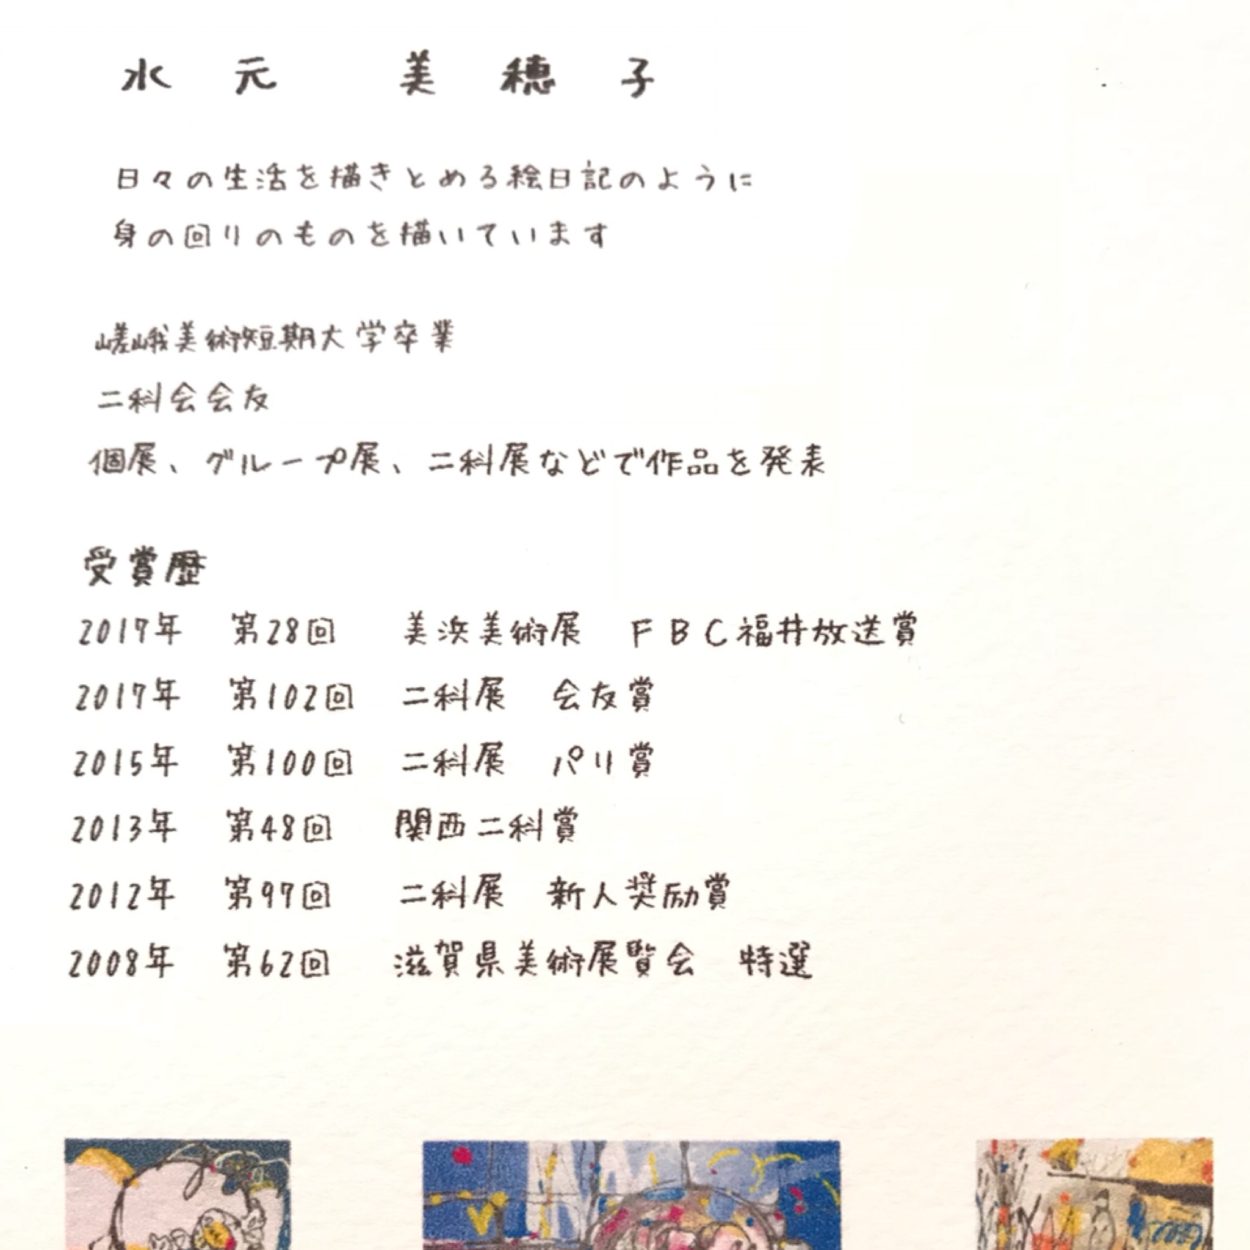 水元 美穂子
日々の生活を描きとめる絵日記のように
身の回りのものを描いています
嵯峨美術短期大学卒業
二科会会友
個展、グループ展、二科展などで作品を発表
受賞歴
2017年 第28回 美浜美術展 FBC福井放送賞
2017年 第102回 二科展 会友賞
2015年 第100回 二科展 パリ賞
2013年 第48回 関西二科賞
2012年 第97回 二科展 新人奨励賞
2008年 第62回 滋賀県美術展覧会 特選